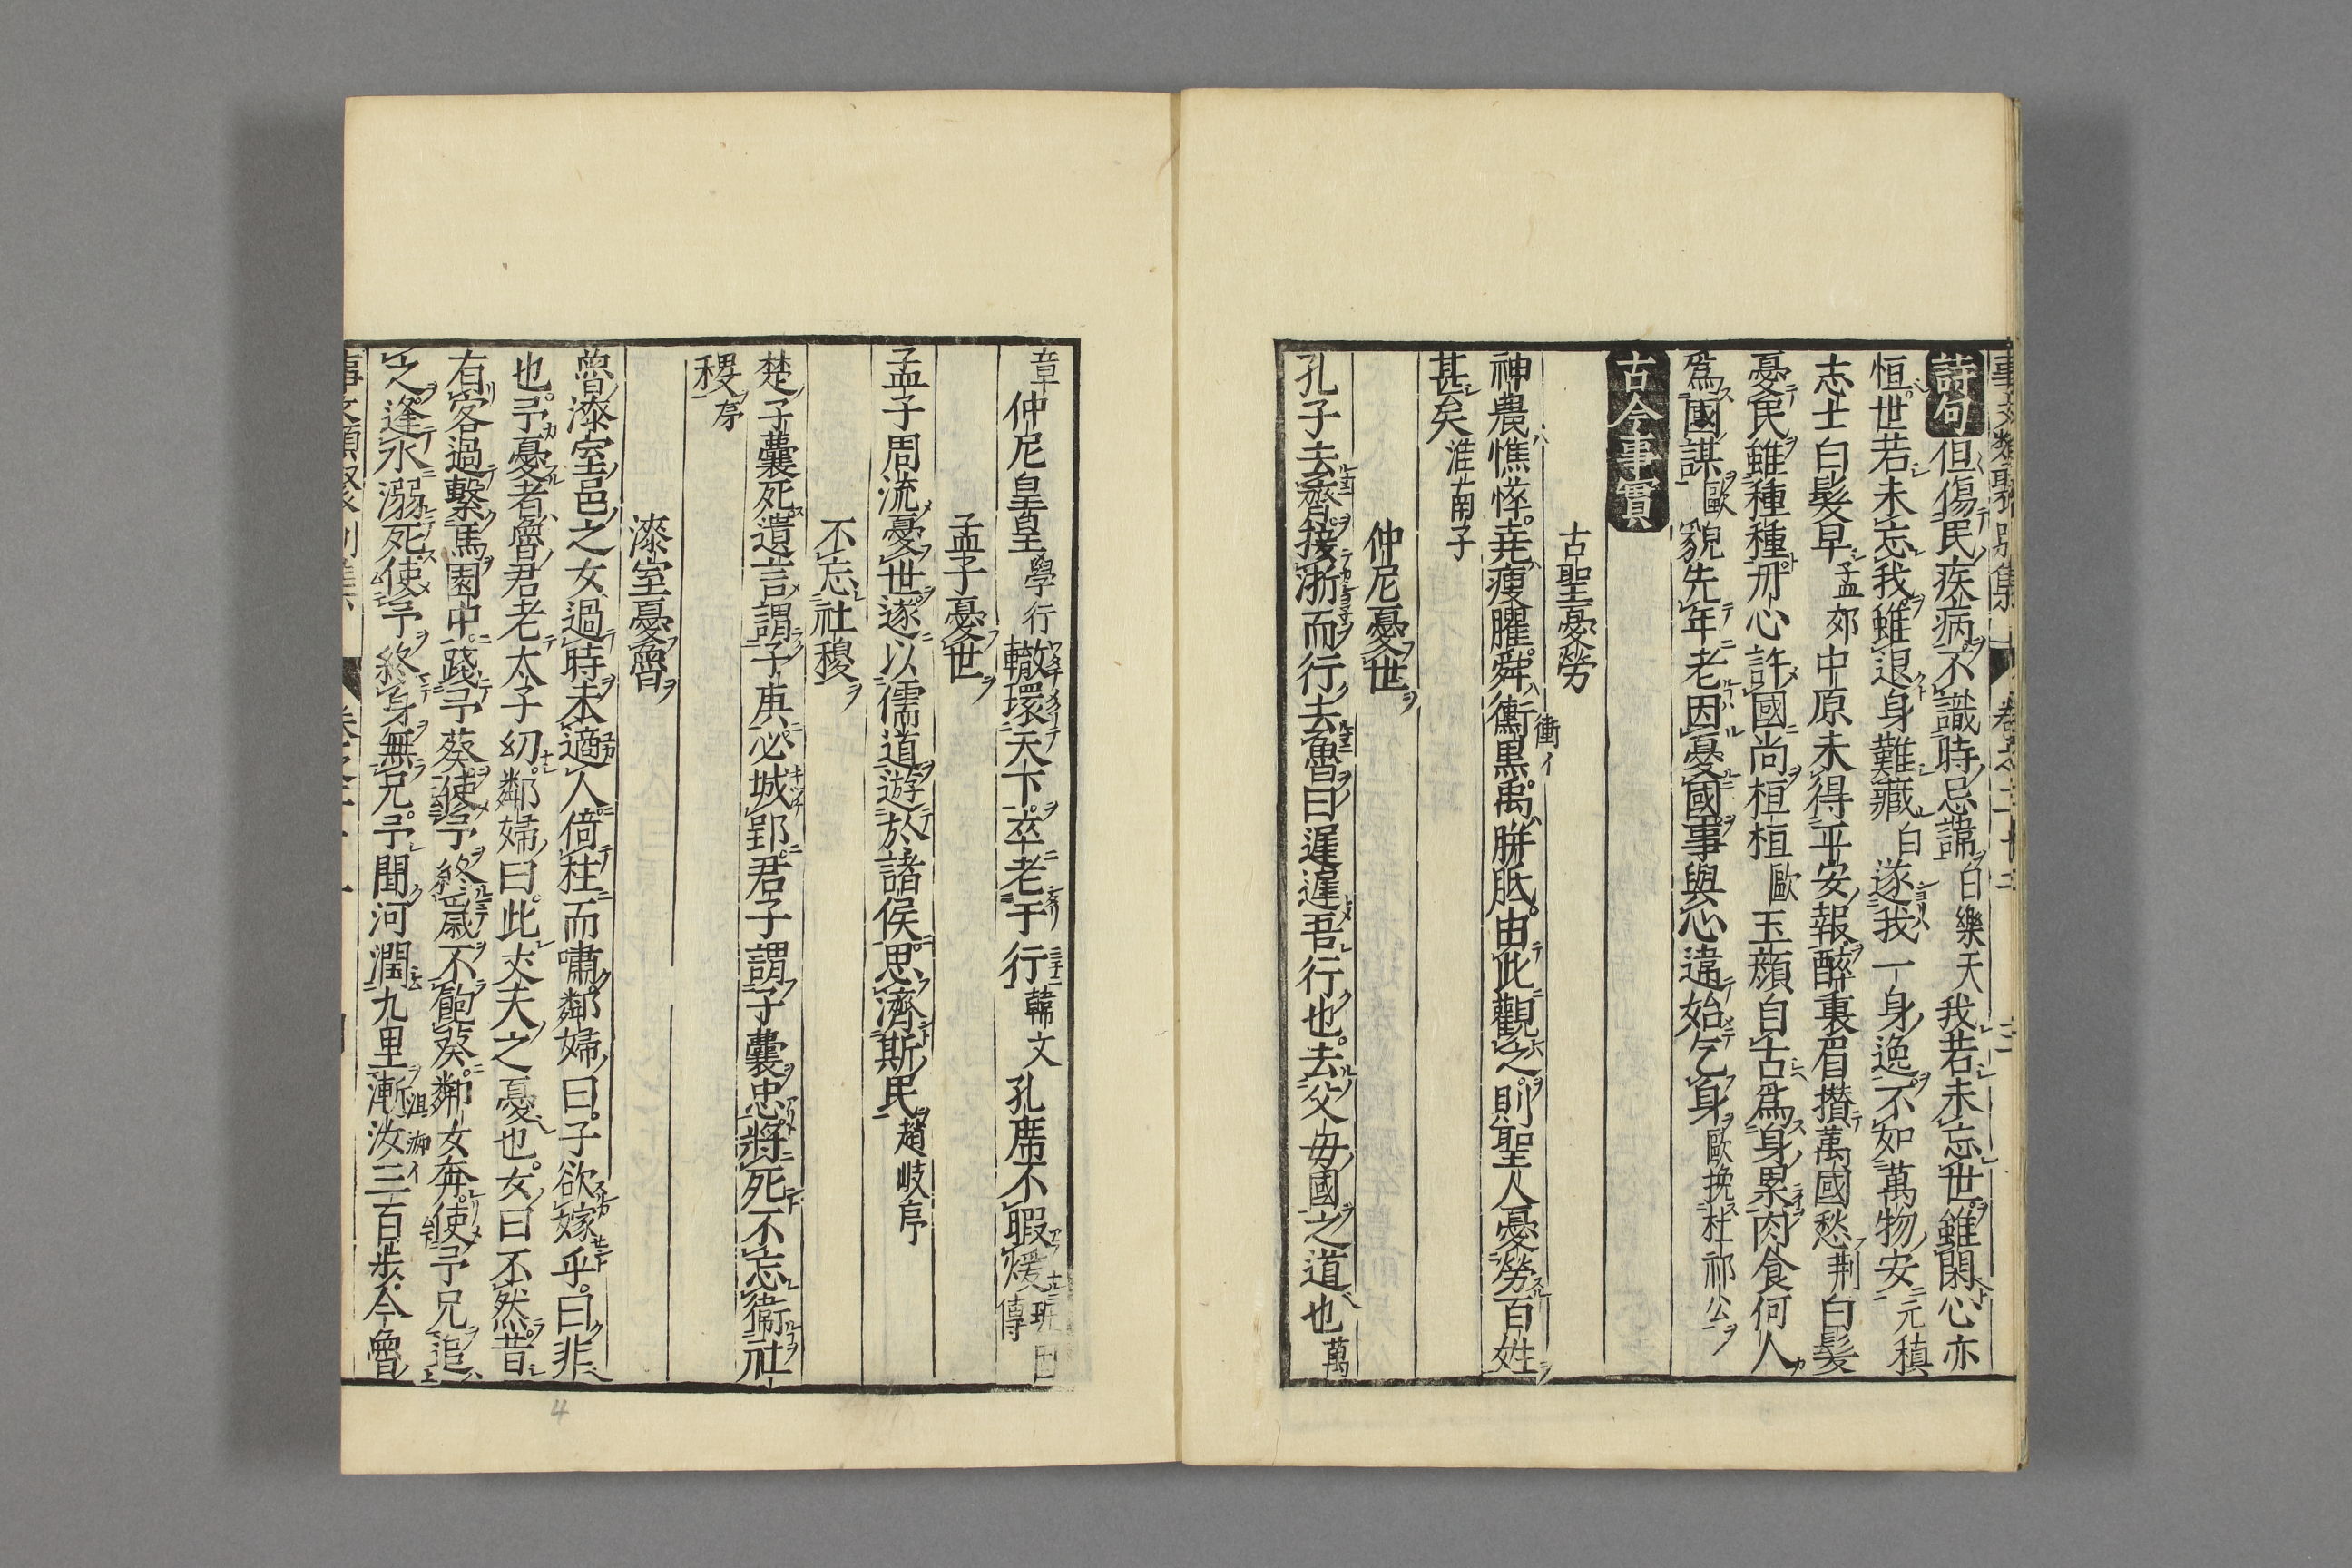 詩句 但傷民疾病不識時忌諱白樂天 我若未忘世雖閑心亦
恒世若未忘我雖退身難藏白 遂我一身逸不如萬物安元稹
志士白髮早孟郊 中原未得平安報醉裏眉攅萬國愁荆 白髮
憂民雖種種册心許國尚桓桓歐 玉顔自古爲身累肉食何人
爲國謀歐 貌先年老因憂國事與心違始乞身歐挽杜祁公
古今事實
古聖憂勞
神農憔悴堯瘦臞舜衡黒禹胼胝由此觀之則聖人憂勞百姓
衝イ
甚矣淮南子
仲尼憂世
孔子去齊接浙而行去魯曰遲遲吾行也去父毋國之道也萬
章 仲尼皇皇學行 轍環天下卒老于行韓文 孔席不暇煖班固傳
孟子憂世
孟子周流憂世遂以儒道遊於諸侯思濟斯民趙岐序
不忘社稷
楚子囊死遺言謂子庚必城郢君子謂子囊忠將死不忘衞社
稷序
漆室憂魯
魯漆室邑之女過時未適人倚柱而嘯鄰婦曰子欲嫁乎曰非
也予憂者魯君老太子幼鄰婦曰此丈夫之憂也女曰不然昔
有客過繫馬園中踐予葵使予終歲不飽葵鄰女奔使予兄追
之逢水溺死使予終身無兄予聞河潤九里漸汝三百步今魯
沮洳イ